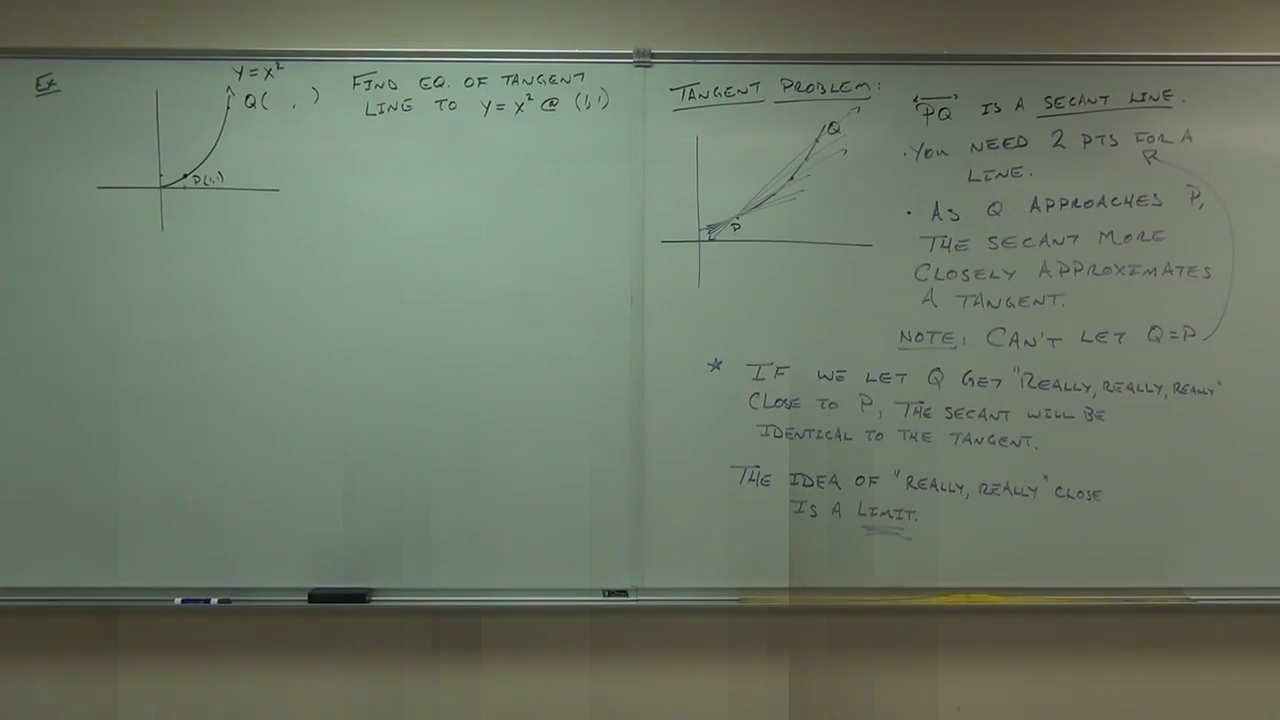 Ex
y = x²
Q( , )
P(1,1)
FIND EQ. OF TANGENT
LINE TO y = x² @ (1,1)
TANGENT PROBLEM:
Q
P
PQ IS A SECANT LINE.
· YOU NEED 2 PTS FOR A
LINE.
· AS Q APPROACHES P,
THE SECANT MORE
CLOSELY APPROXIMATES
A TANGENT.
NOTE: CAN'T LET Q=P
* IF WE LET Q GET "REALLY, REALLY, REALLY"
CLOSE TO P, THE SECANT WILL BE
IDENTICAL TO THE TANGENT.
THE IDEA OF "REALLY, REALLY" CLOSE
IS A LIMIT.